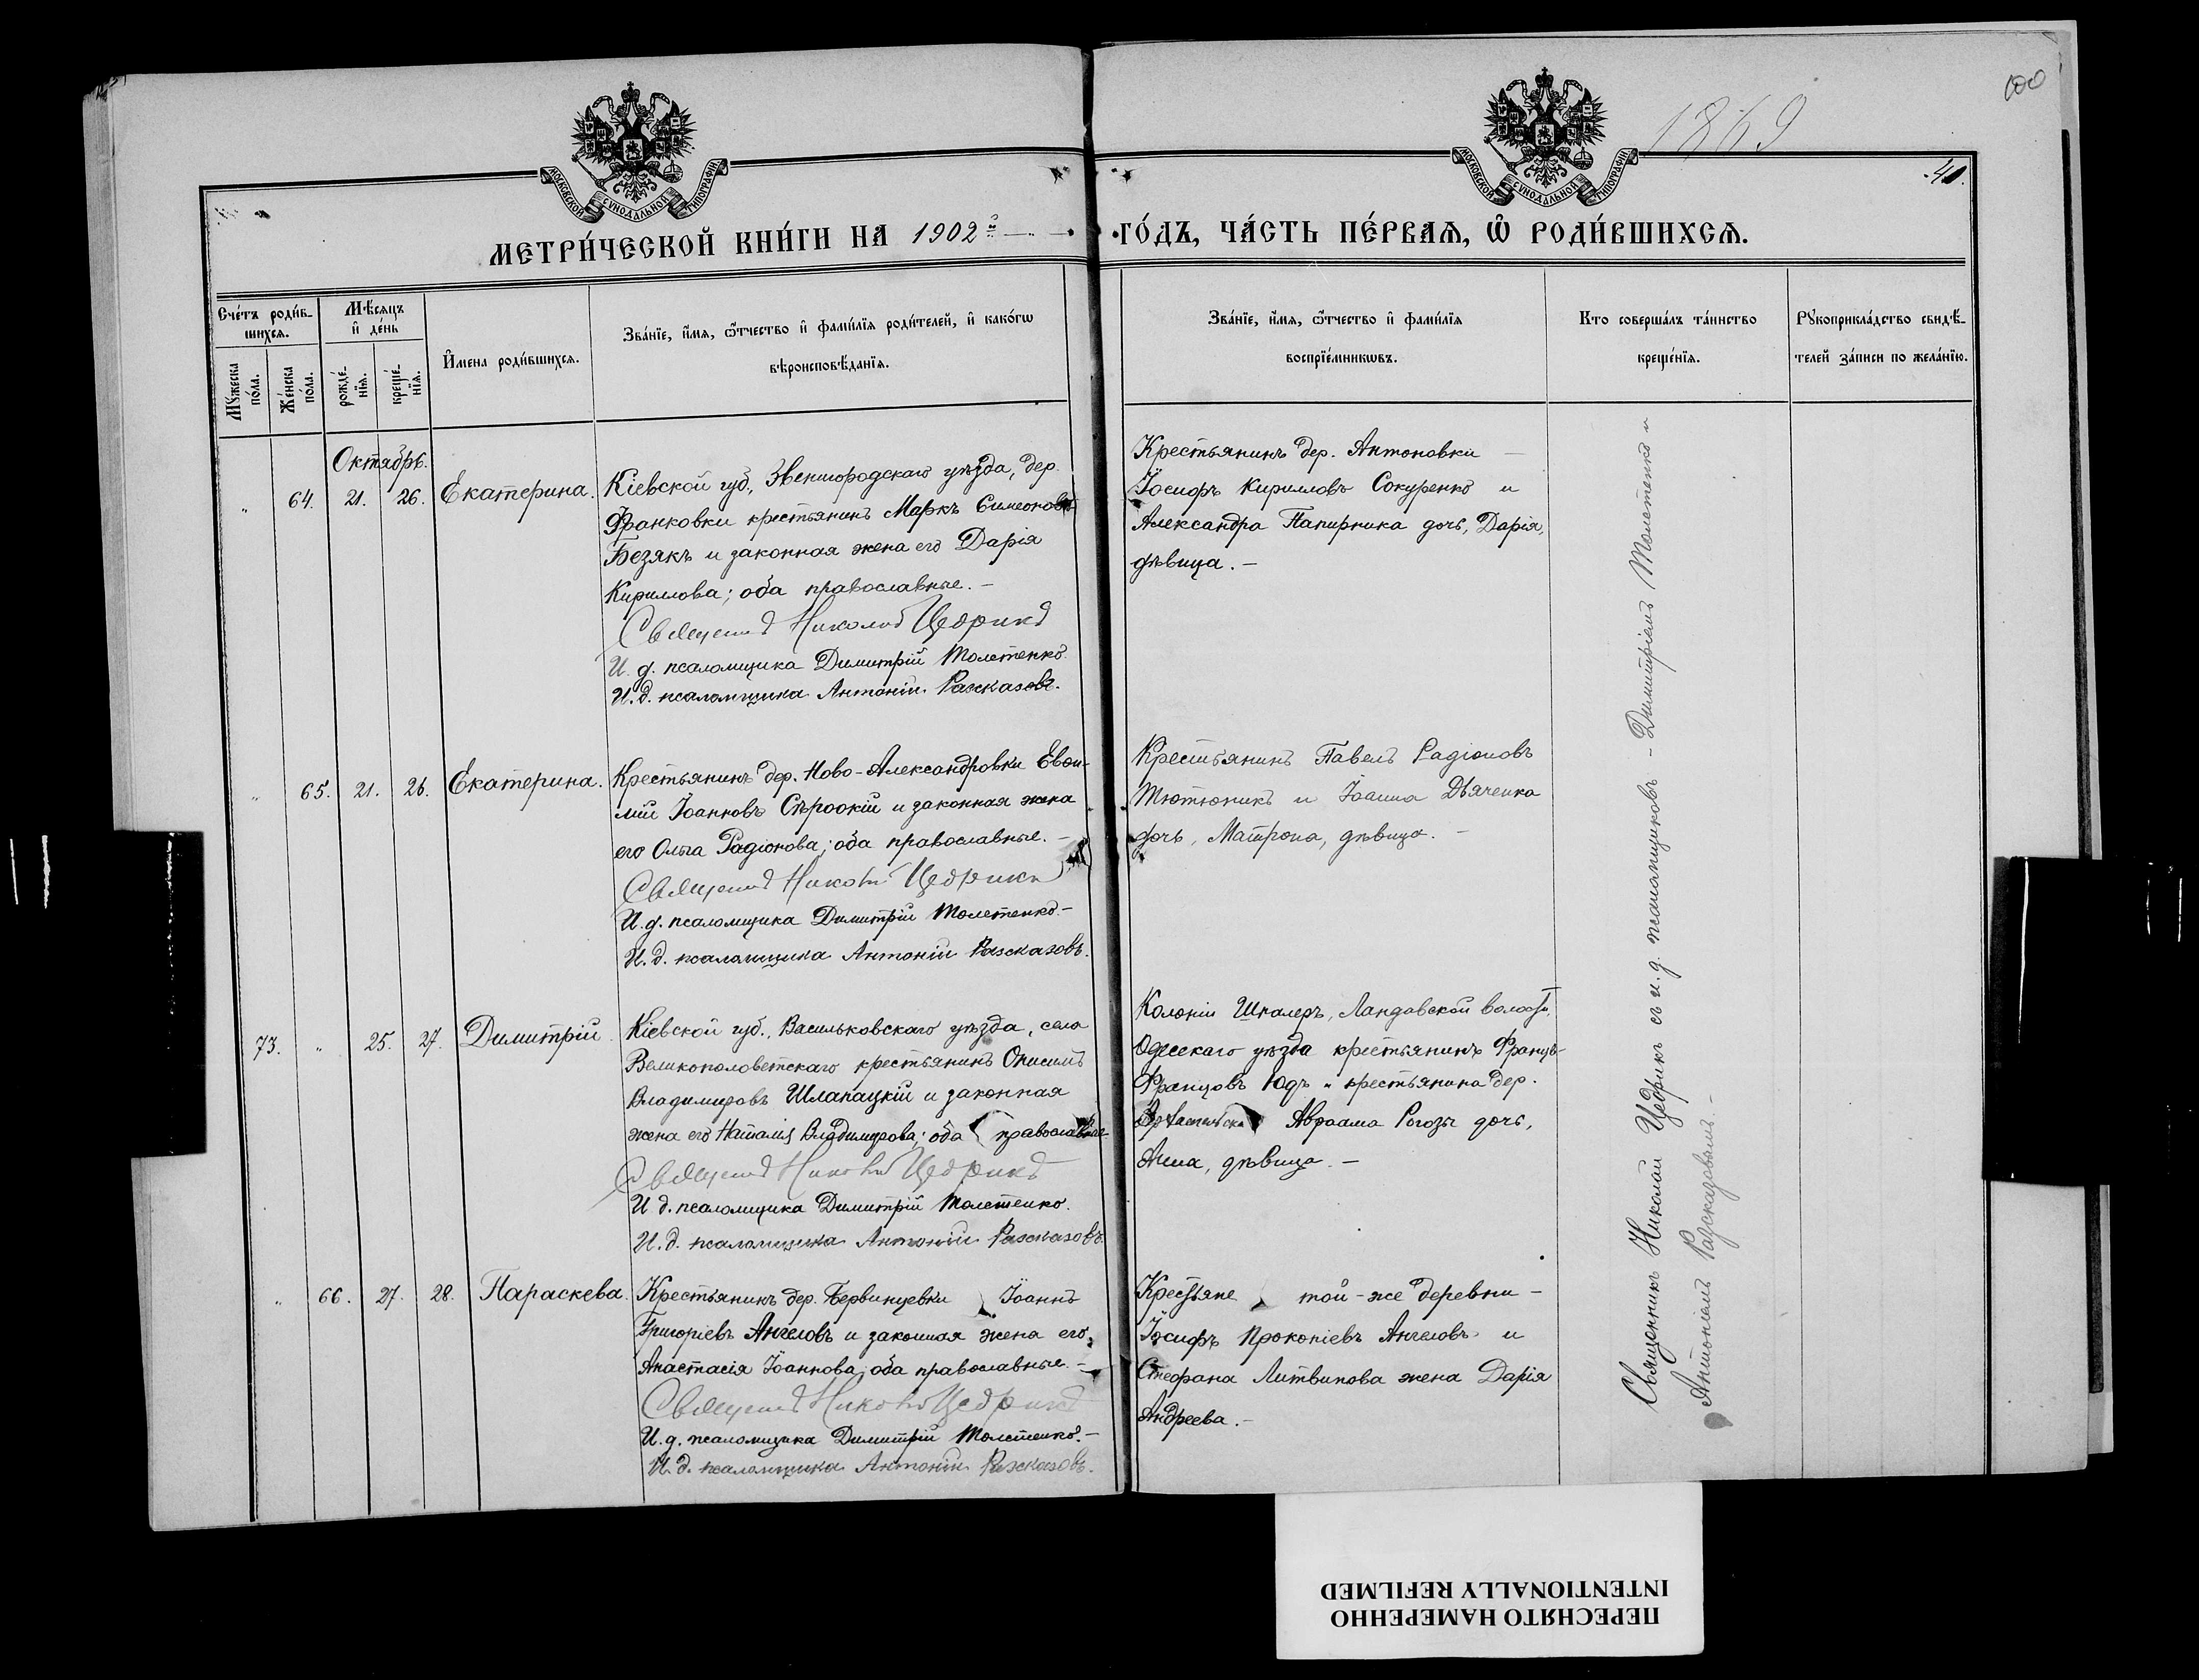 100
1869
МОСКОВСКОЙ СѴНОДАЛЬНОЙ ТИПОГРАФІИ
МОСКОВСКОЙ СѴНОДАЛЬНОЙ ТИПОГРАФІИ
40.
МЕТРИ́ЧЕСКОЙ КНИ́ГИ НА 1902й ГО́ДЪ, ЧА́СТЬ ПЕ́РВАѦ, Ѡ҆ РОДИ́ВШИХСѦ.
Сче́тъ роди́в-
шихся.
Мѣ́сяцъ
и҆ де́нь
Мꙋ́жеска
по́ла.
Же́нска
по́ла.
рожде́-
нїѧ.
креще́-
нїѧ.
И҆мена роди́вшихсѧ.
Зва́нїе, и҆́мѧ, ѻ҆́тчество и҆ фами́лїѧ роди́телей, и҆ како́гѡ
вѣроисповѣ́данїѧ.
Зва́нїе, и҆́мѧ, ѻ҆́тчество и҆ фами́лїѧ
воспрїе́мникѡвъ.
Кто соверша́лъ та́инство
креще́нїѧ.
Рꙋкоприкла́дство свидѣ́-
телей за́писи по жела́нїю.
Октябрь.
„ 64. 21. 26. Екатерина.
Кіевской губ., Звенигородскаго уѣзда, дер.
Франковки крестьянинъ Маркъ Симеоновъ
Безякъ и законная жена его Дарія
Кириллова; оба православные. –
Священникъ Николай Цефрикъ
И. д. псаломщика Димитрій Толстенко
И. д. псаломщика Антоній Разсказовъ.
Крестьянинъ дер. Антоновки –
Іосифъ Кирилловъ Сокуренко и
Александра Папирника дочь, Дарія,
дѣвица. –
„ 65. 21. 26. Екатерина.
Крестьянинъ дер. Ново-Александровки Евѳи-
мій Іоанновъ Сѣроокій и законная жена
его Ольга Радіонова; оба православные. –
Священникъ Николай Цефрикъ
И. д. псаломщика Димитрій Толстенко –
И. д. псаломщика Антоній Разсказовъ.
Крестьянинъ Павелъ Радіоновъ
Тютюникъ и Іоанна Дьяченка
дочь, Матрона, дѣвица. –
73. „ 25. 27. Димитрій.
Кіевской губ., Васильковскаго уѣзда, села
Великополоветскаго крестьянинъ Онисимъ
Владимировъ Шлапацкій и законная
жена его Наталія Владимирова; оба православные
Священникъ Николай Цефрикъ
И. д. псаломщика Димитрій Толстенко.
И. д. псаломщика Антоній Разсказовъ.
Колоніи Шпалеръ, Ландавской волости,
Одесскаго уѣзда крестьянинъ Францъ
Францовъ Юдъ и крестьянина дер.
Авраама Рогозы дочь,
Анна, дѣвица. –
„ 66. 27. 28. Параскева.
Крестьянинъ дер. Бервинцевки Іоаннъ
Григоріевъ Ангеловъ и законная жена его
Анастасія Іоаннова; оба православные. –
Священникъ Николай Цефрикъ
И. д. псаломщика Димитрій Толстенко. –
И. д. псаломщика Антоній Разсказовъ.
Крестьяне той-же деревни –
Іосифъ Прокопіевъ Ангеловъ и
Стефана Литвинова жена Дарія
Андреева. –
Священникъ Николай Цефрикъ съ и. д. псаломщиковъ – Димитріемъ Толстенко и
Антоніемъ Разсказовымъ. –
ПЕРЕСНЯТО НАМЕРЕННО
INTENTIONALLY REFILMED